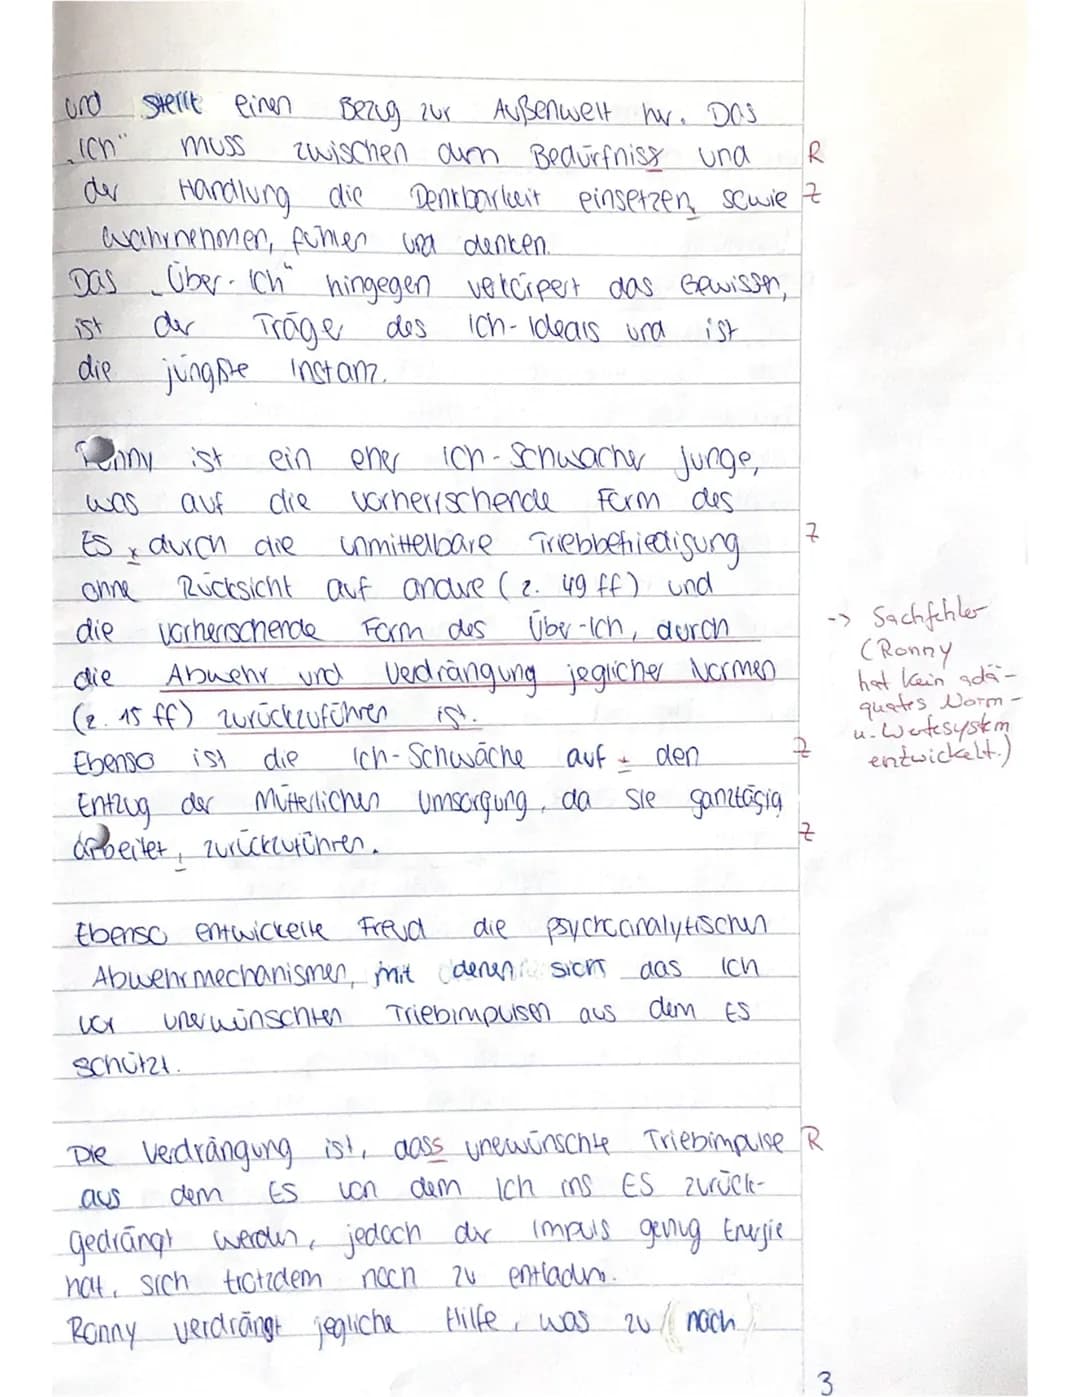 und stellt einen Bezug zur Außenwelt her. Das
„Ich" muss zwischen dem Bedürfniss und R
der Handlung die Denkbarkeit einsetzen, sowie Z
wahrnehmen, fühlen und denken.
Das „Über-Ich" hingegen verkörpert das Gewissen,
ist der Träger des Ich-Ideals und ist
die jüngste Instanz.
Ronny ist ein eher Ich-Schwacher Junge,
was auf die vorherrschende Form des
ES x durch die unmittelbare Triebbefriedigung Z
ohne Rücksicht auf andere (z. 49 ff) und
die vorherrschende Form des Über-Ich, durch
die Abwehr und Verdrängung jeglicher Normen
(z. 15 ff) zurückzuführen ist.
-> Sachfehler
(Ronny
hat kein adä-
quates Norm-
u. Wertesystem
entwickelt.)
Ebenso ist die Ich-Schwäche auf den Z
Entzug der Mütterlichen Umsorgung, da sie ganztägig
arbeitet, zurückzuführen. Z
Ebenso entwickelte Freud die psychoanalytischen
Abwehrmechanismen, mit denen sich das Ich
vor unerwünschten Triebimpulsen aus dem ES
schützt.
Die Verdrängung ist, dass unewünschte Triebimpulse R
aus dem ES von dem Ich ins ES zurück-
gedrängt werden, jedoch der Impuls genug Energie
hat, sich trotzdem noch zu entladen.
Ronny verdrängt jegliche Hilfe, was zu nach
3